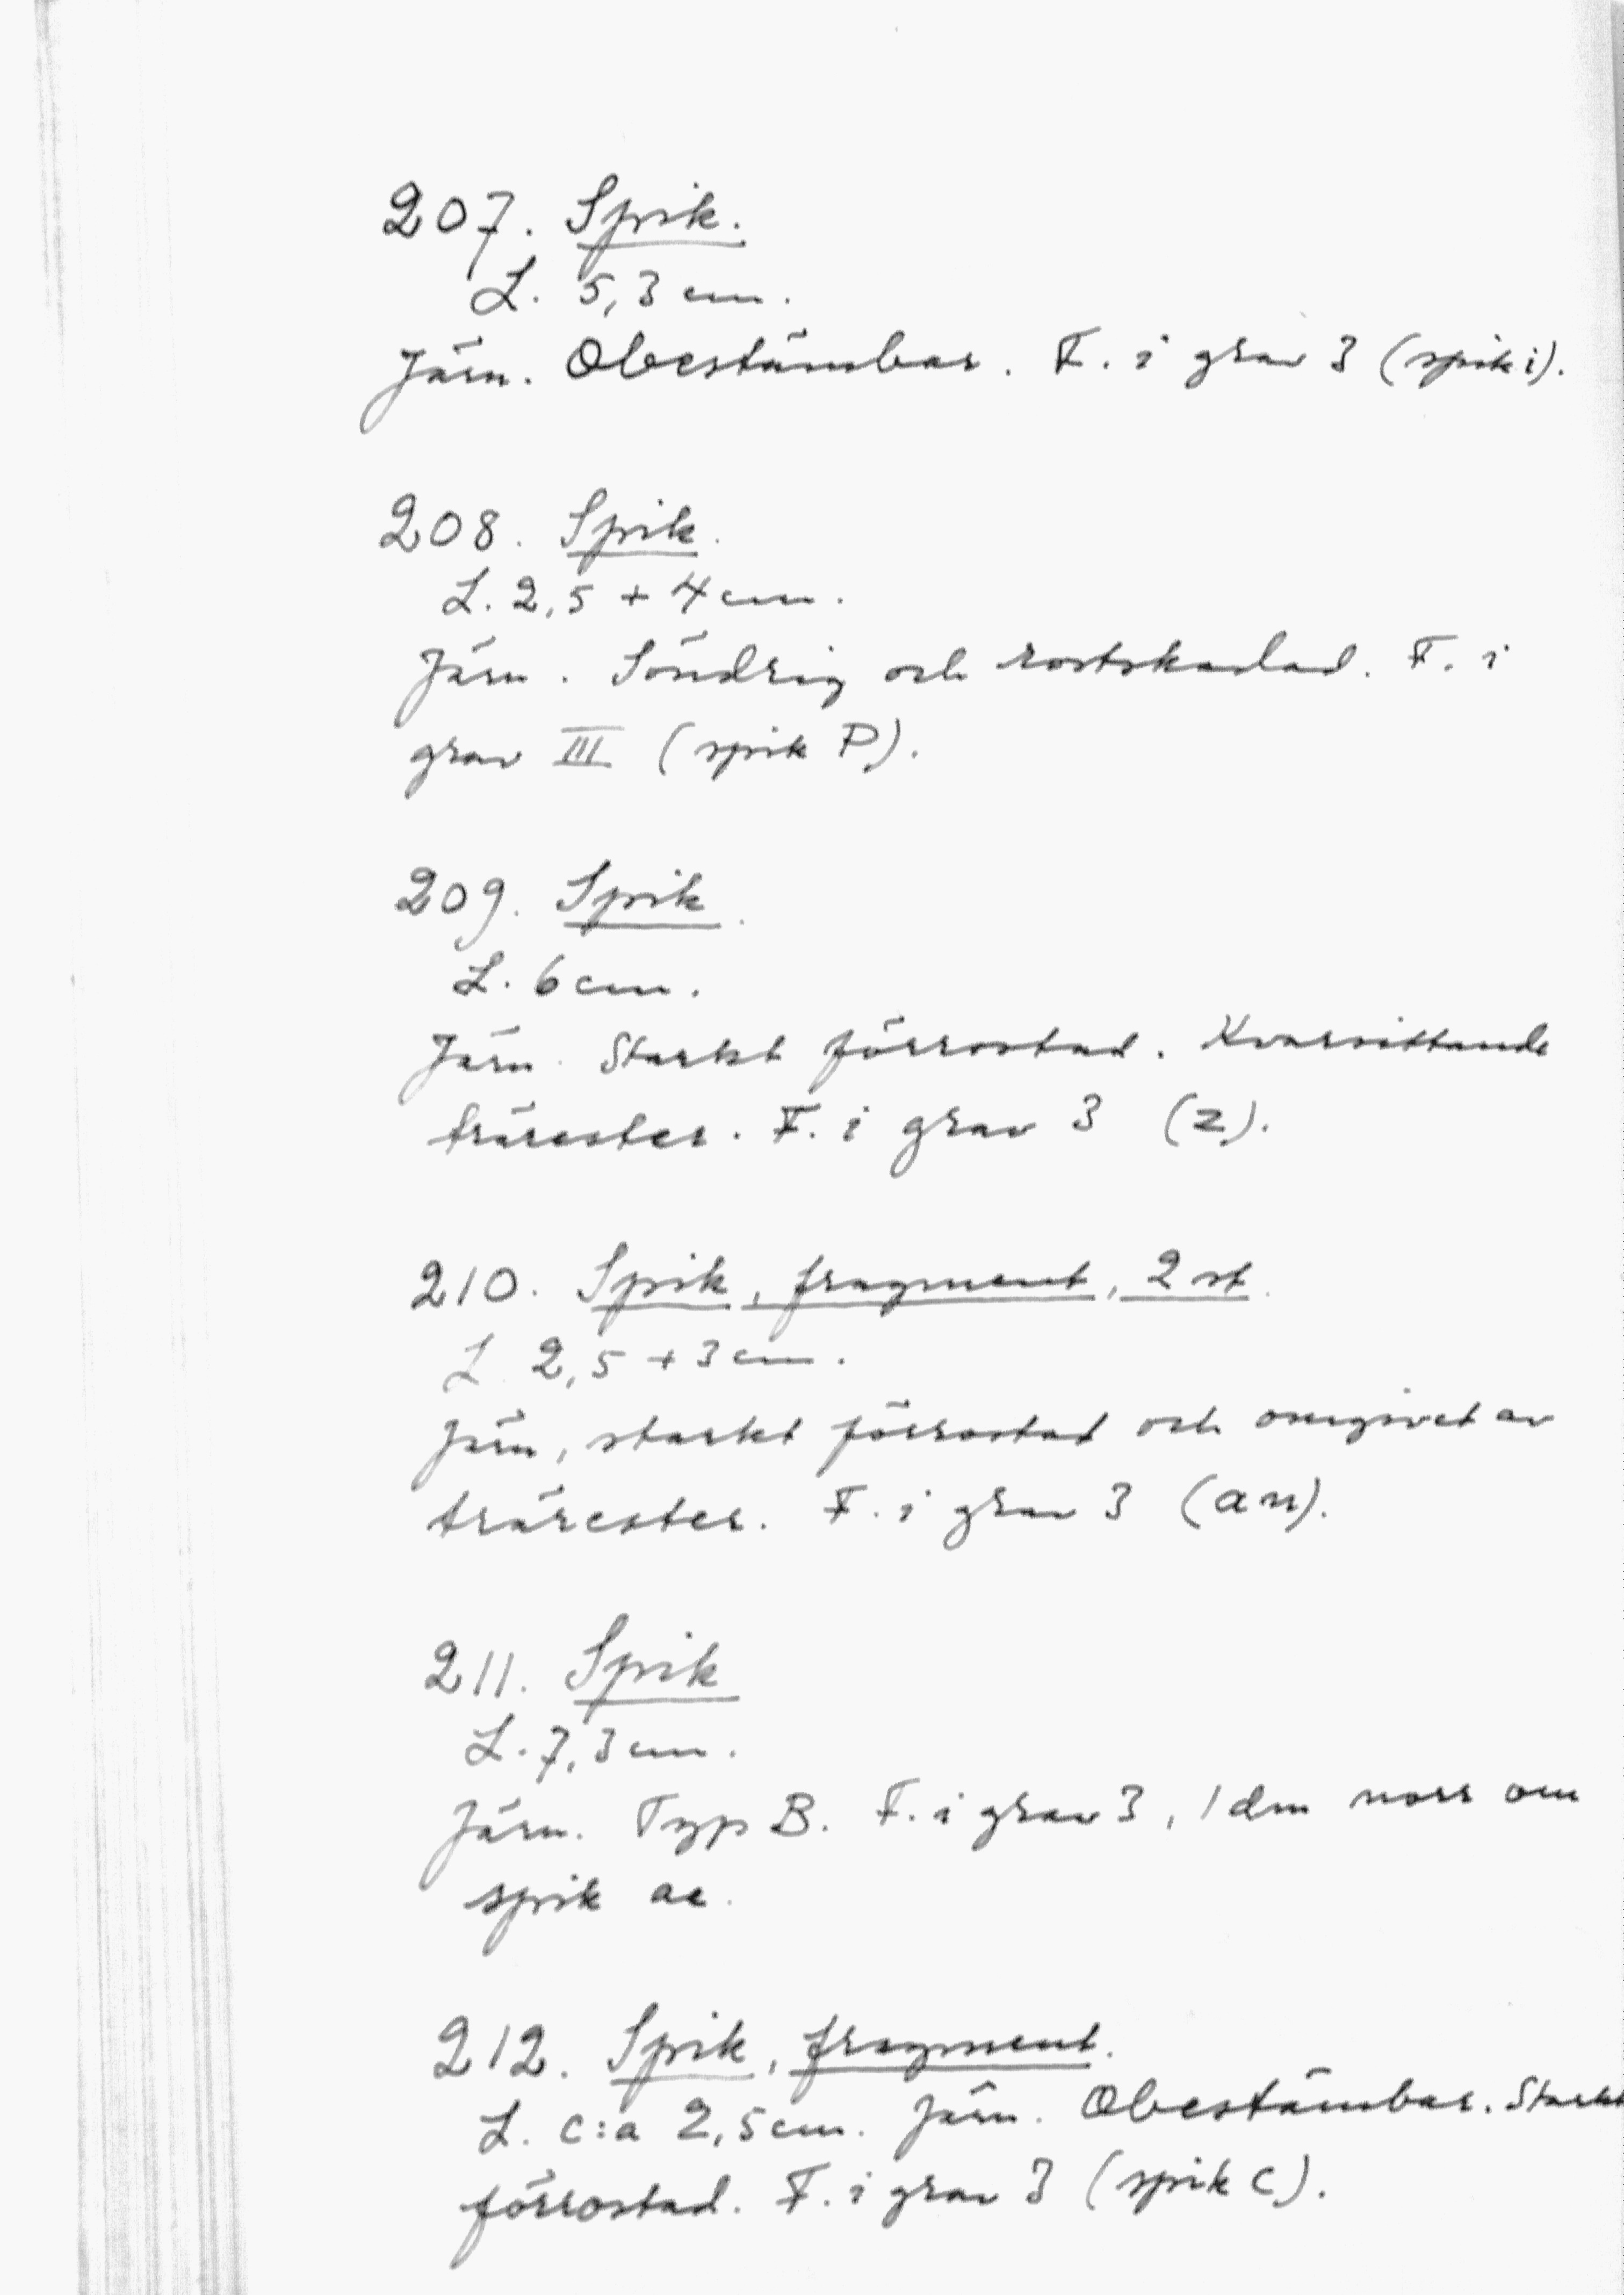 207. Spik.
L. 5,3 cm.
Järn. Obestämbar. F. i grav 3 (spik i).
208. Spik.
L. 2,5 + 4 cm.
Järn. Söndrig och rostskadad. F. i
grav III (spik P).
209. Spik.
L. 6 cm.
Järn. Starkt förrostad. Kvarsittande
trärester. F. i grav 3 (z).
210. Spik, fragment, 2 st.
L. 2,5 + 3 cm.
Järn, starkt förrostad och omgivet av
trärester. F. i grav 3 (an).
211. Spik
L. 7,3 cm.
Järn. Typ B. F. i grav 3, 1 dm norr om
spik ae.
212. Spik, fragment.
L. c:a 2,5 cm. Järn. Obestämbar. Starkt
förrostad. F. i grav 3 (spik C).